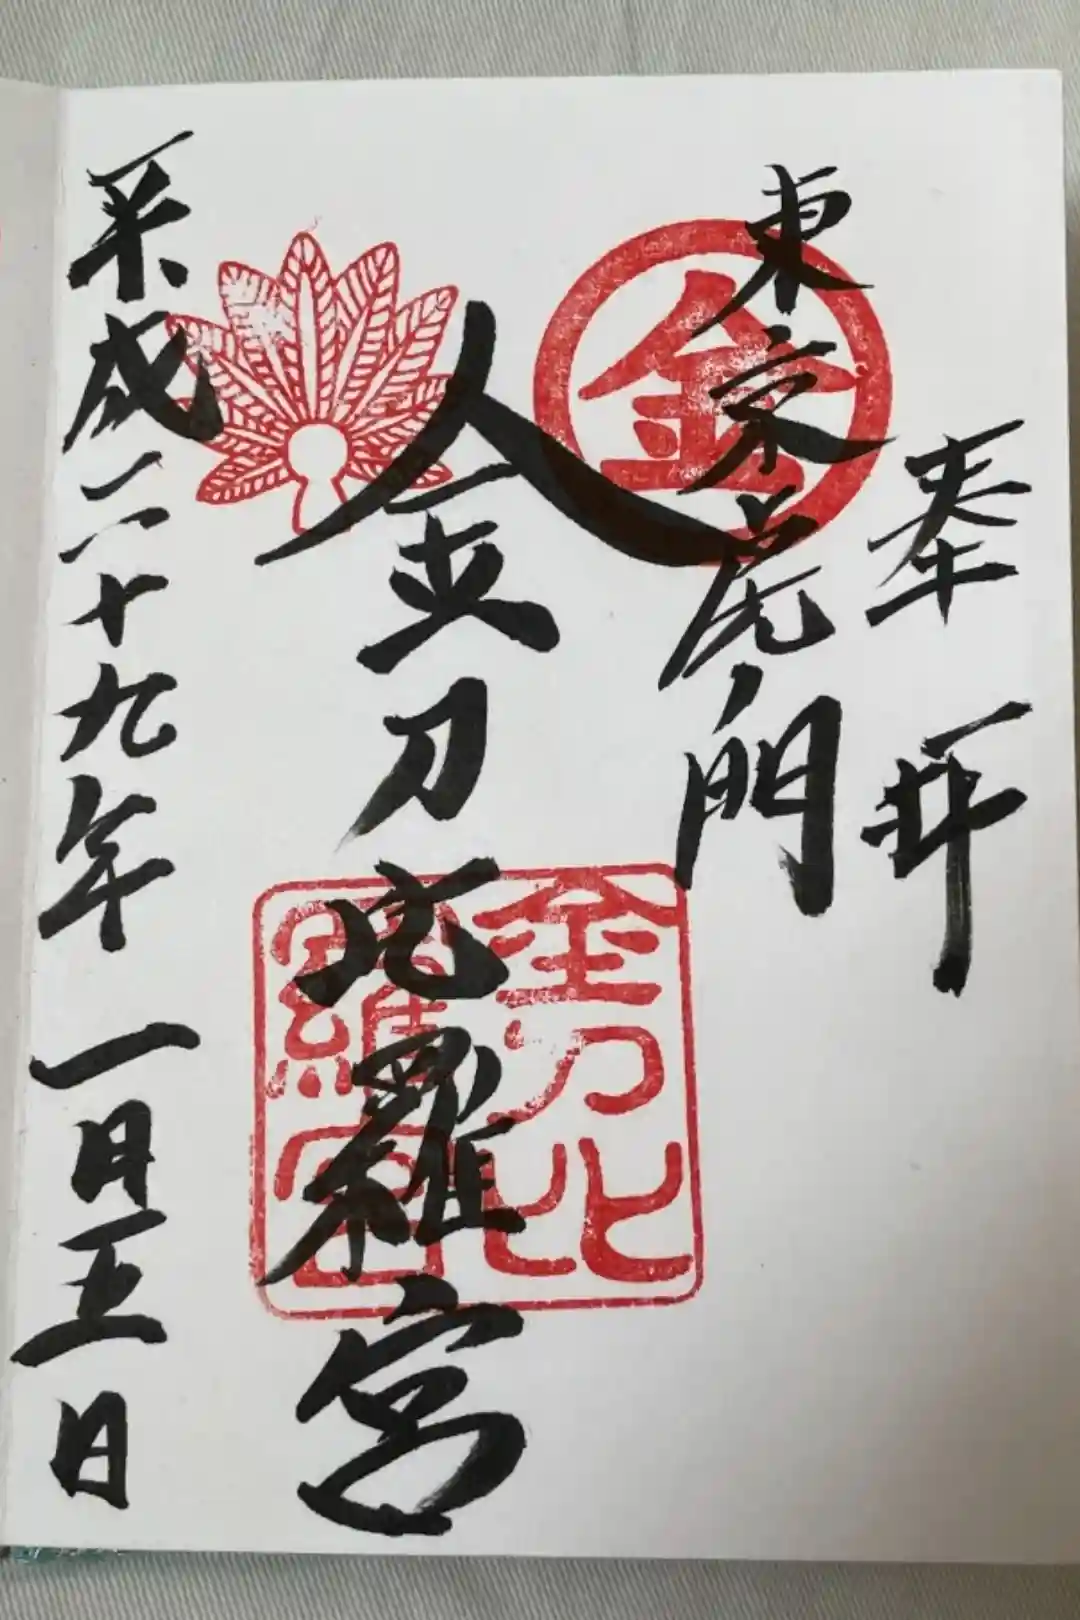 奉拝
東京虎ノ門
金
金刀比羅宮
金刀比
羅宮
平成二十九年一月五日